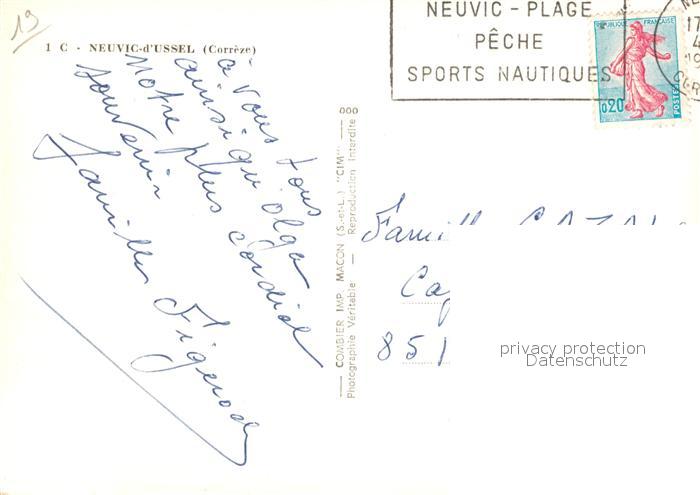 19
1 C - NEUVIC-d'USSEL (Corrèze)
à vous tous
ainsi qu'olga
notre plus cordial
souvenir
famille Figerod
COMBIER IMP. MACON (S.-et-L.) "CIM"
Photographie Véritable — Reproduction Interdite
NEUVIC - PLAGE
PÊCHE
SPORTS NAUTIQUES
REPUBLIQUE FRANÇAISE
0,20
POSTES
Famille
851
privacy protection
Datenschutz